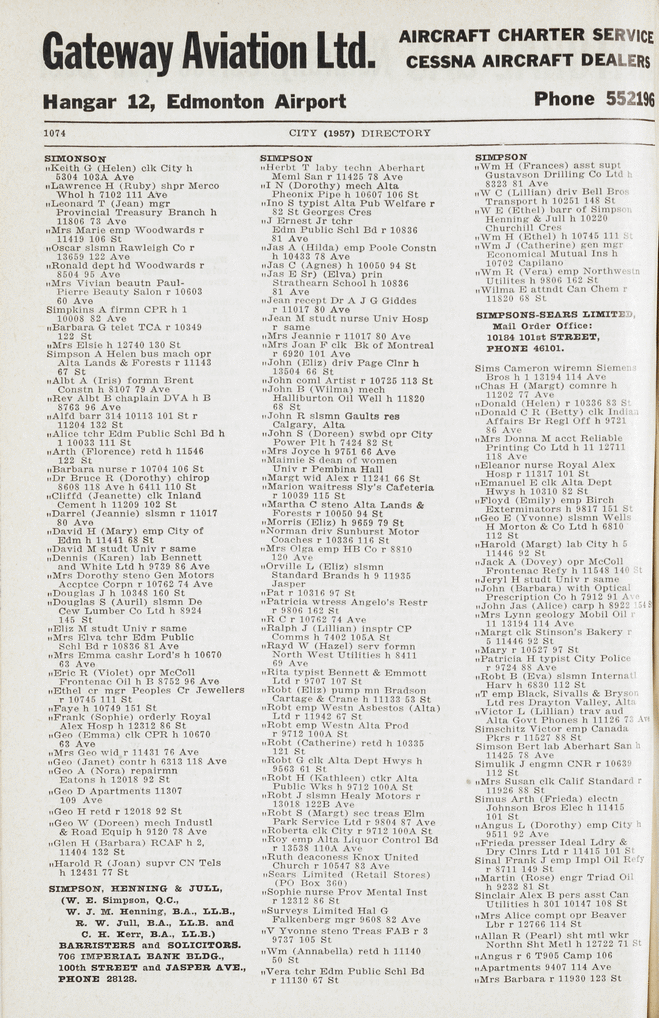 Gateway Aviation Ltd.
AIRCRAFT CHARTER SERVICE
CESSNA AIRCRAFT DEALERS
Hangar 12, Edmonton Airport
Phone 552196
1074
CITY (1957) DIRECTORY
SIMONSON
„Keith G (Helen) clk City h
5304 103A Ave
„Lawrence H (Ruby) shpr Merco
Whol h 7102 111 Ave
„Leonard T (Jean) mgr
Provincial Treasury Branch h
11806 73 Ave
„Mrs Marie emp Woodwards r
11419 106 St
„Oscar slsmn Rawleigh Co r
13659 122 Ave
„Ronald dept hd Woodwards r
8504 95 Ave
„Mrs Vivian beautn Paul-
Pierre Beauty Salon r 10603
60 Ave
Simpkins A firmn CPR h 1
10008 82 Ave
„Barbara G telet TCA r 10349
122 St
„Mrs Elsie h 12740 130 St
Simpson A Helen bus mach opr
Alta Lands & Forests r 11143
67 St
„Albt A (Iris) formn Brent
Constn h 8107 79 Ave
„Rev Albt B chaplain DVA h B
8763 96 Ave
„Alfd barr 314 10113 101 St r
11204 132 St
„Alice tchr Edm Public Schl Bd h
1 10033 111 St
„Arth (Florence) retd h 11546
122 St
„Barbara nurse r 10704 106 St
„Dr Bruce R (Dorothy) chirop
8608 118 Ave h 6411 110 St
„Cliffd (Jeanette) clk Inland
Cement h 11209 102 St
„Darrel (Jeannie) slsmn r 11017
80 Ave
„David H (Mary) emp City of
Edm h 11441 68 St
„David M studt Univ r same
„Dennis (Karen) lab Bennett
and White Ltd h 9739 86 Ave
„Mrs Dorothy steno Gen Motors
Accptce Corpn r 10762 74 Ave
„Douglas J h 10348 160 St
„Douglas S (Auril) slsmn De
Cew Lumber Co Ltd h 8924
145 St
„Eliz M studt Univ r same
„Mrs Elva tchr Edm Public
Schl Bd r 10836 81 Ave
„Mrs Emma cashr Lord's h 10670
63 Ave
„Eric R (Violet) opr McColl
Frontenac Oil h B 8752 96 Ave
„Ethel cr mgr Peoples Cr Jewellers
r 10745 111 St
„Faye h 10749 151 St
„Frank (Sophie) orderly Royal
Alex Hosp h 12312 86 St
„Geo (Emma) clk CPR h 10670
63 Ave
„Mrs Geo wid r 11431 76 Ave
„Geo (Janet) contr h 6313 118 Ave
„Geo A (Nora) repairmn
Eatons h 12018 92 St
„Geo D Apartments 11307
109 Ave
„Geo H retd r 12018 92 St
„Geo W (Doreen) mech Industl
& Road Equip h 9120 78 Ave
„Glen H (Barbara) RCAF h 2,
11404 132 St
„Harold R (Joan) supvr CN Tels
h 12431 77 St
SIMPSON, HENNING & JULL,
(W. E. Simpson, Q.C.,
W. J. M. Henning, B.A., LL.B.,
R. W. Jull, B.A., LL.B. and
C. H. Kerr, B.A., LL.B.)
BARRISTERS and SOLICITORS.
706 IMPERIAL BANK BLDG.,
100th STREET and JASPER AVE.,
PHONE 28128.
SIMPSON
„Herbt T laby techn Aberhart
Meml San r 11425 78 Ave
„I N (Dorothy) mech Alta
Pheonix Pipe h 10607 106 St
„Ino S typist Alta Pub Welfare r
82 St Georges Cres
„J Ernest Jr tchr
Edm Public Schl Bd r 10836
81 Ave
„Jas A (Hilda) emp Poole Constn
h 10433 78 Ave
„Jas C (Agnes) h 10050 94 St
„Jas E Sr) (Elva) prin
Strathearn School h 10836
81 Ave
„Jean recept Dr A J G Giddes
r 11017 80 Ave
„Jean M studt nurse Univ Hosp
r same
„Mrs Jeannie r 11017 80 Ave
„Mrs Joan F clk Bk of Montreal
r 6920 101 Ave
„John (Eliz) driv Page Clnr h
13504 66 St
„John coml Artist r 10725 113 St
„John B (Wilma) mech
Halliburton Oil Well h 11820
68 St
„John R slsmn Gaults res
Calgary, Alta
„John S (Doreen) swbd opr City
Power Plt h 7424 82 St
„Mrs Joyce h 9751 66 Ave
„Maimie S dean of women
Univ r Pembina Hall
„Margt wid Alex r 11241 66 St
„Marion waitress Sly's Cafeteria
r 10039 115 St
„Martha C steno Alta Lands &
Forests r 10050 94 St
„Morris (Eliz) h 9659 79 St
„Norman driv Sunburst Motor
Coaches r 10336 116 St
„Mrs Olga emp HB Co r 8810
120 Ave
„Orville L (Eliz) slsmn
Standard Brands h 9 11935
Jasper
„Pat r 10316 97 St
„Patricia wtress Angelo's Restr
r 9806 162 St
„R C r 10762 74 Ave
„Ralph J (Lillian) insptr CP
Comms h 7402 105A St
„Rayd W (Hazel) serv formn
North West Utilities h 8411
69 Ave
„Rita typist Bennett & Emmott
Ltd r 9707 107 St
„Robt (Eliz) pump mn Bradson
Cartage & Crane h 11133 53 St
„Robt emp Westn Asbestos (Alta)
Ltd r 11942 67 St
„Robt emp Westn Alta Prod
r 9712 100A St
„Robt (Catherine) retd h 10335
121 St
„Robt G clk Alta Dept Hghys h
9563 61 St
„Robt H (Kathleen) ctkr Alta
Public Wks h 9712 100A St
„Robt J slsmn Healy Motors r
13018 122B Ave
„Robt S (Margt) sec treas Elm
Park Service Ltd r 9804 87 Ave
„Roberta clk City r 9712 100A St
„Roy emp Alta Liquor Control Bd
r 13538 110A Ave
„Ruth deaconess Knox United
Church r 10547 83 Ave
„Sears Limited (Retail Stores)
(PO Box 360)
„Sophie nurse Prov Mental Inst
r 12312 86 St
„Surveys Limited Hal G
Falkenberg mgr 9608 82 Ave
„V Yvonne steno Treas FAB r 3
9737 105 St
„Wm (Annabella) retd h 11140
50 St
„Vera tchr Edm Public Schl Bd
r 11130 67 St
SIMPSON
„Wm H (Frances) asst supt
Gustavson Drilling Co Ltd h
8323 81 Ave
„W C (Lillian) driv Bell Bros
Transport h 10251 148 St
„W E (Ethel) barr of Simpson
Henning & Jull h 10220
Churchill Cres
„Wm H (Ethel) h 10745 111 St
„Wm J (Catherine) gen mgr
Economical Mutual Ins h
10702 Capilano
„Wm R (Vera) emp Northwestn
Utilites h 9806 162 St
„Wilma E attndt Can Chem r
11820 68 St
SIMPSONS-SEARS LIMITED,
Mail Order Office:
10184 101st STREET,
PHONE 46101.
Sims Cameron wiremn Siemens
Bros h 1 13194 114 Ave
„Chas H (Margt) comnre h
11202 77 Ave
„Donald (Helen) r 10336 83 St
„Donald C R (Betty) clk Indian
Affairs Br Regl Off h 9721
86 Ave
„Mrs Donna M acct Reliable
Printing Co Ltd h 11 12711
118 Ave
„Eleanor nurse Royal Alex
Hosp r 11317 101 St
„Emanuel E clk Alta Dept
Hwys h 10310 82 St
„Floyd (Emily) emp Birch
Exterminators h 9817 151 St
„Geo E (Yvonne) slsmn Wells
H Morton & Co Ltd h 6810
112 St
„Harold (Margt) lab City h 5
11446 92 St
„Jack A (Dovey) opr McColl
Frontenac Refy h 11548 140 St
„Jeryl H studt Univ r same
„John (Barbara) with Optical
Prescription Co h 7912 91 Ave
„John Jas (Alice) carp h 8922 154 S
„Mrs Lynn geology Mobil Oil r
11 13194 114 Ave
„Margt clk Stinson's Bakery r
5 11446 92 St
„Mary r 10527 97 St
„Patricia H typist City Police
r 9724 88 Ave
„Robt B (Eva) slsmn Internatl
Harv h 6830 112 St
„T emp Black, Sivalls & Bryson
Ltd res Drayton Valley, Alta
„Victor L (Lillian) trav aud
Alta Govt Phones h 11126 73 Ave
Simschitz Victor emp Canada
Pkrs r 11527 88 St
Simson Bert lab Aberhart San h
11425 78 Ave
Simulik J engmn CNR r 10639
112 St
„Mrs Susan clk Calif Standard r
11926 88 St
Simus Arth (Frieda) electn
Johnson Bros Elec h 11415
101 St
„Angus L (Dorothy) emp City h
9511 92 Ave
„Frieda presser Ideal Ldry &
Dry Clnrs Ltd r 11415 101 St
Sinal Frank J emp Impl Oil Refy
r 8711 149 St
„Martin (Rose) engr Triad Oil
h 9232 81 St
Sinclair Alex B pers asst Can
Utilities h 301 10147 108 St
„Mrs Alice compt opr Beaver
Lbr r 12766 114 St
„Allan R (Pearl) sht mtl wkr
Northn Sht Metl h 12722 71 St
„Angus r 6 T905 Camp 106
„Apartments 9407 114 Ave
„Mrs Barbara r 11930 123 St